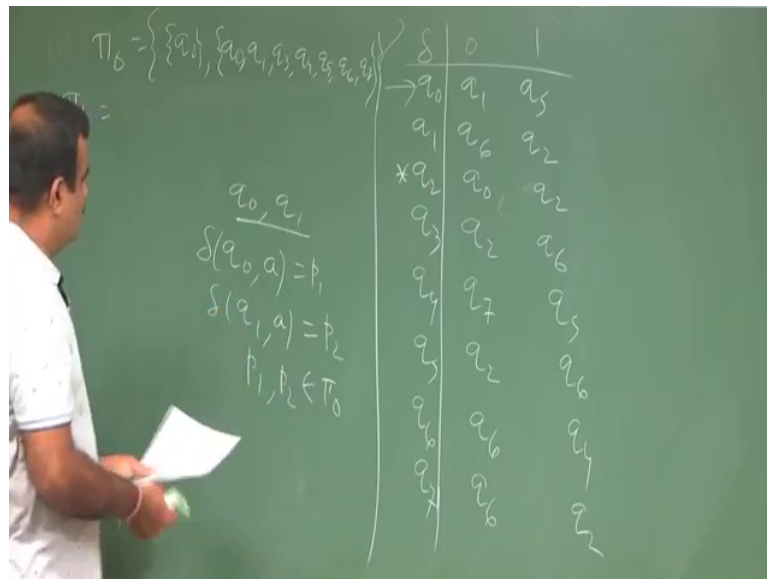 π₀ = {{q₂}, {q₀, q₁, q₃, q₄, q₅, q₆, q₇}}
π₁ =
q₀, q₁
δ(q₀, a) = p₁
δ(q₁, a) = p₂
p₁, p₂ ∈ π₀
δ 0 1
→ q₀ q₁ q₅
q₁ q₆ q₂
* q₂ q₀ q₂
q₃ q₂ q₆
q₄ q₇ q₅
q₅ q₂ q₆
q₆ q₆ q₄
q₇ q₆ q₂